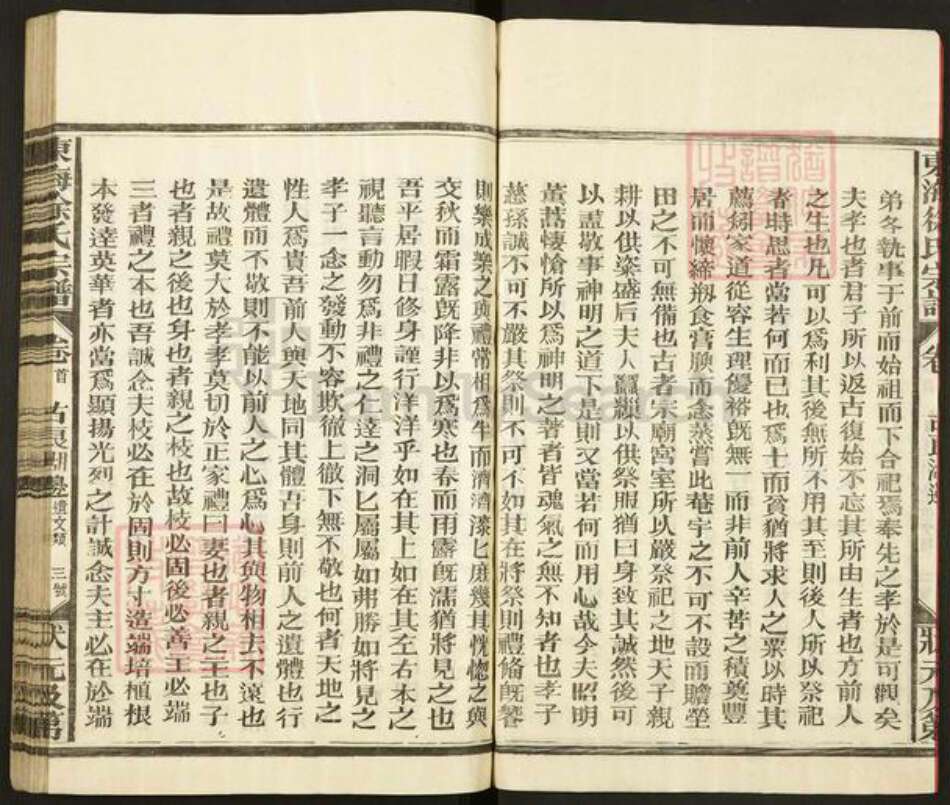 弟各執事于前而始祖而下合祀焉奉先之孝於是可觀矣
夫孝也者君子所以返古復始不忘其所由生者也方前人
之生也凡可以爲利其後無所不用其至則後人所以祭祀
者時思者當若何而已也爲士而貧猶將求人之粟以時其
薦矧家道從容生理優裕旣無一而非前人辛苦之積奠豐
居而懷締剏食膏腴而念蒸嘗此菴宇之不可不設而贍塋
田之不可無備也古者宗廟宮室所以嚴祭祀之地天子親
耕以供粢盛后夫人蠶繅以供祭服猶曰身致其誠然後可
以盡敬事神明之道下是則又當若何而用心哉今夫昭明
焄蒿悽愴所以爲神明之著者皆魂氣之無不知者也孝子
慈孫誠不可不嚴其祭則不可不如其在將祭則禮備旣饗
則樂成樂之與禮常相爲牛而濟濟漆匕庶幾其恍惚之與
交秋而霜露旣降非以爲寒也春而雨露旣濡猶將見之也
吾平居暇日修身謹行洋洋乎如在其上如在其左右本之
視聽言動勿爲非禮之仁達之洞匕屬屬如弗勝如將見之
孝子一念之發動不容欺徹上徹下無不敬也何者天地之
性人爲貴吾前人與天地同其體吾身則前人之遺體也行
遺體而不敬則不能以前人之心爲心其與物相去不遠也
是故敬莫大於孝孝莫切於正家禮曰妻也者親之主也子
也者親之後也身也者親之枝也故枝必固後必善主必端
三者禮之本也吾誠念夫枝必在於固則方寸造端培植根
本發達英華者亦當爲顯揚光列之計誠念夫主必在於端
東海徐氏宗譜
卷首
遺文類
三號
狀元及第
東海徐氏宗譜
卷
狀元及第